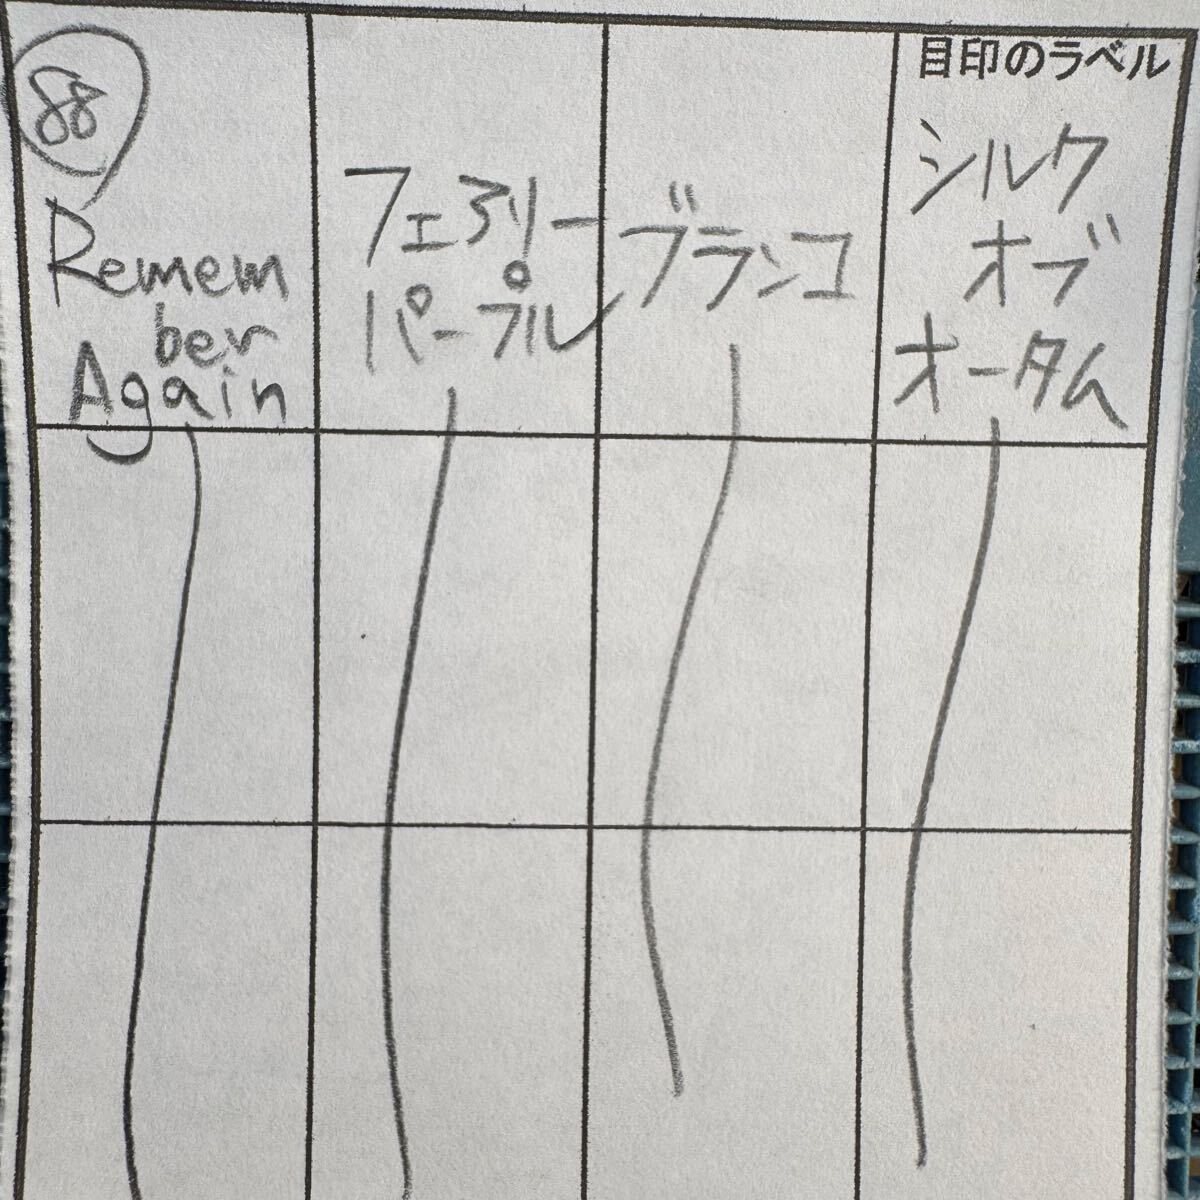 88
Remem
ber
Again
フェアリー
パープル
ブランコ
目印のラベル
シルク
オブ
オータム